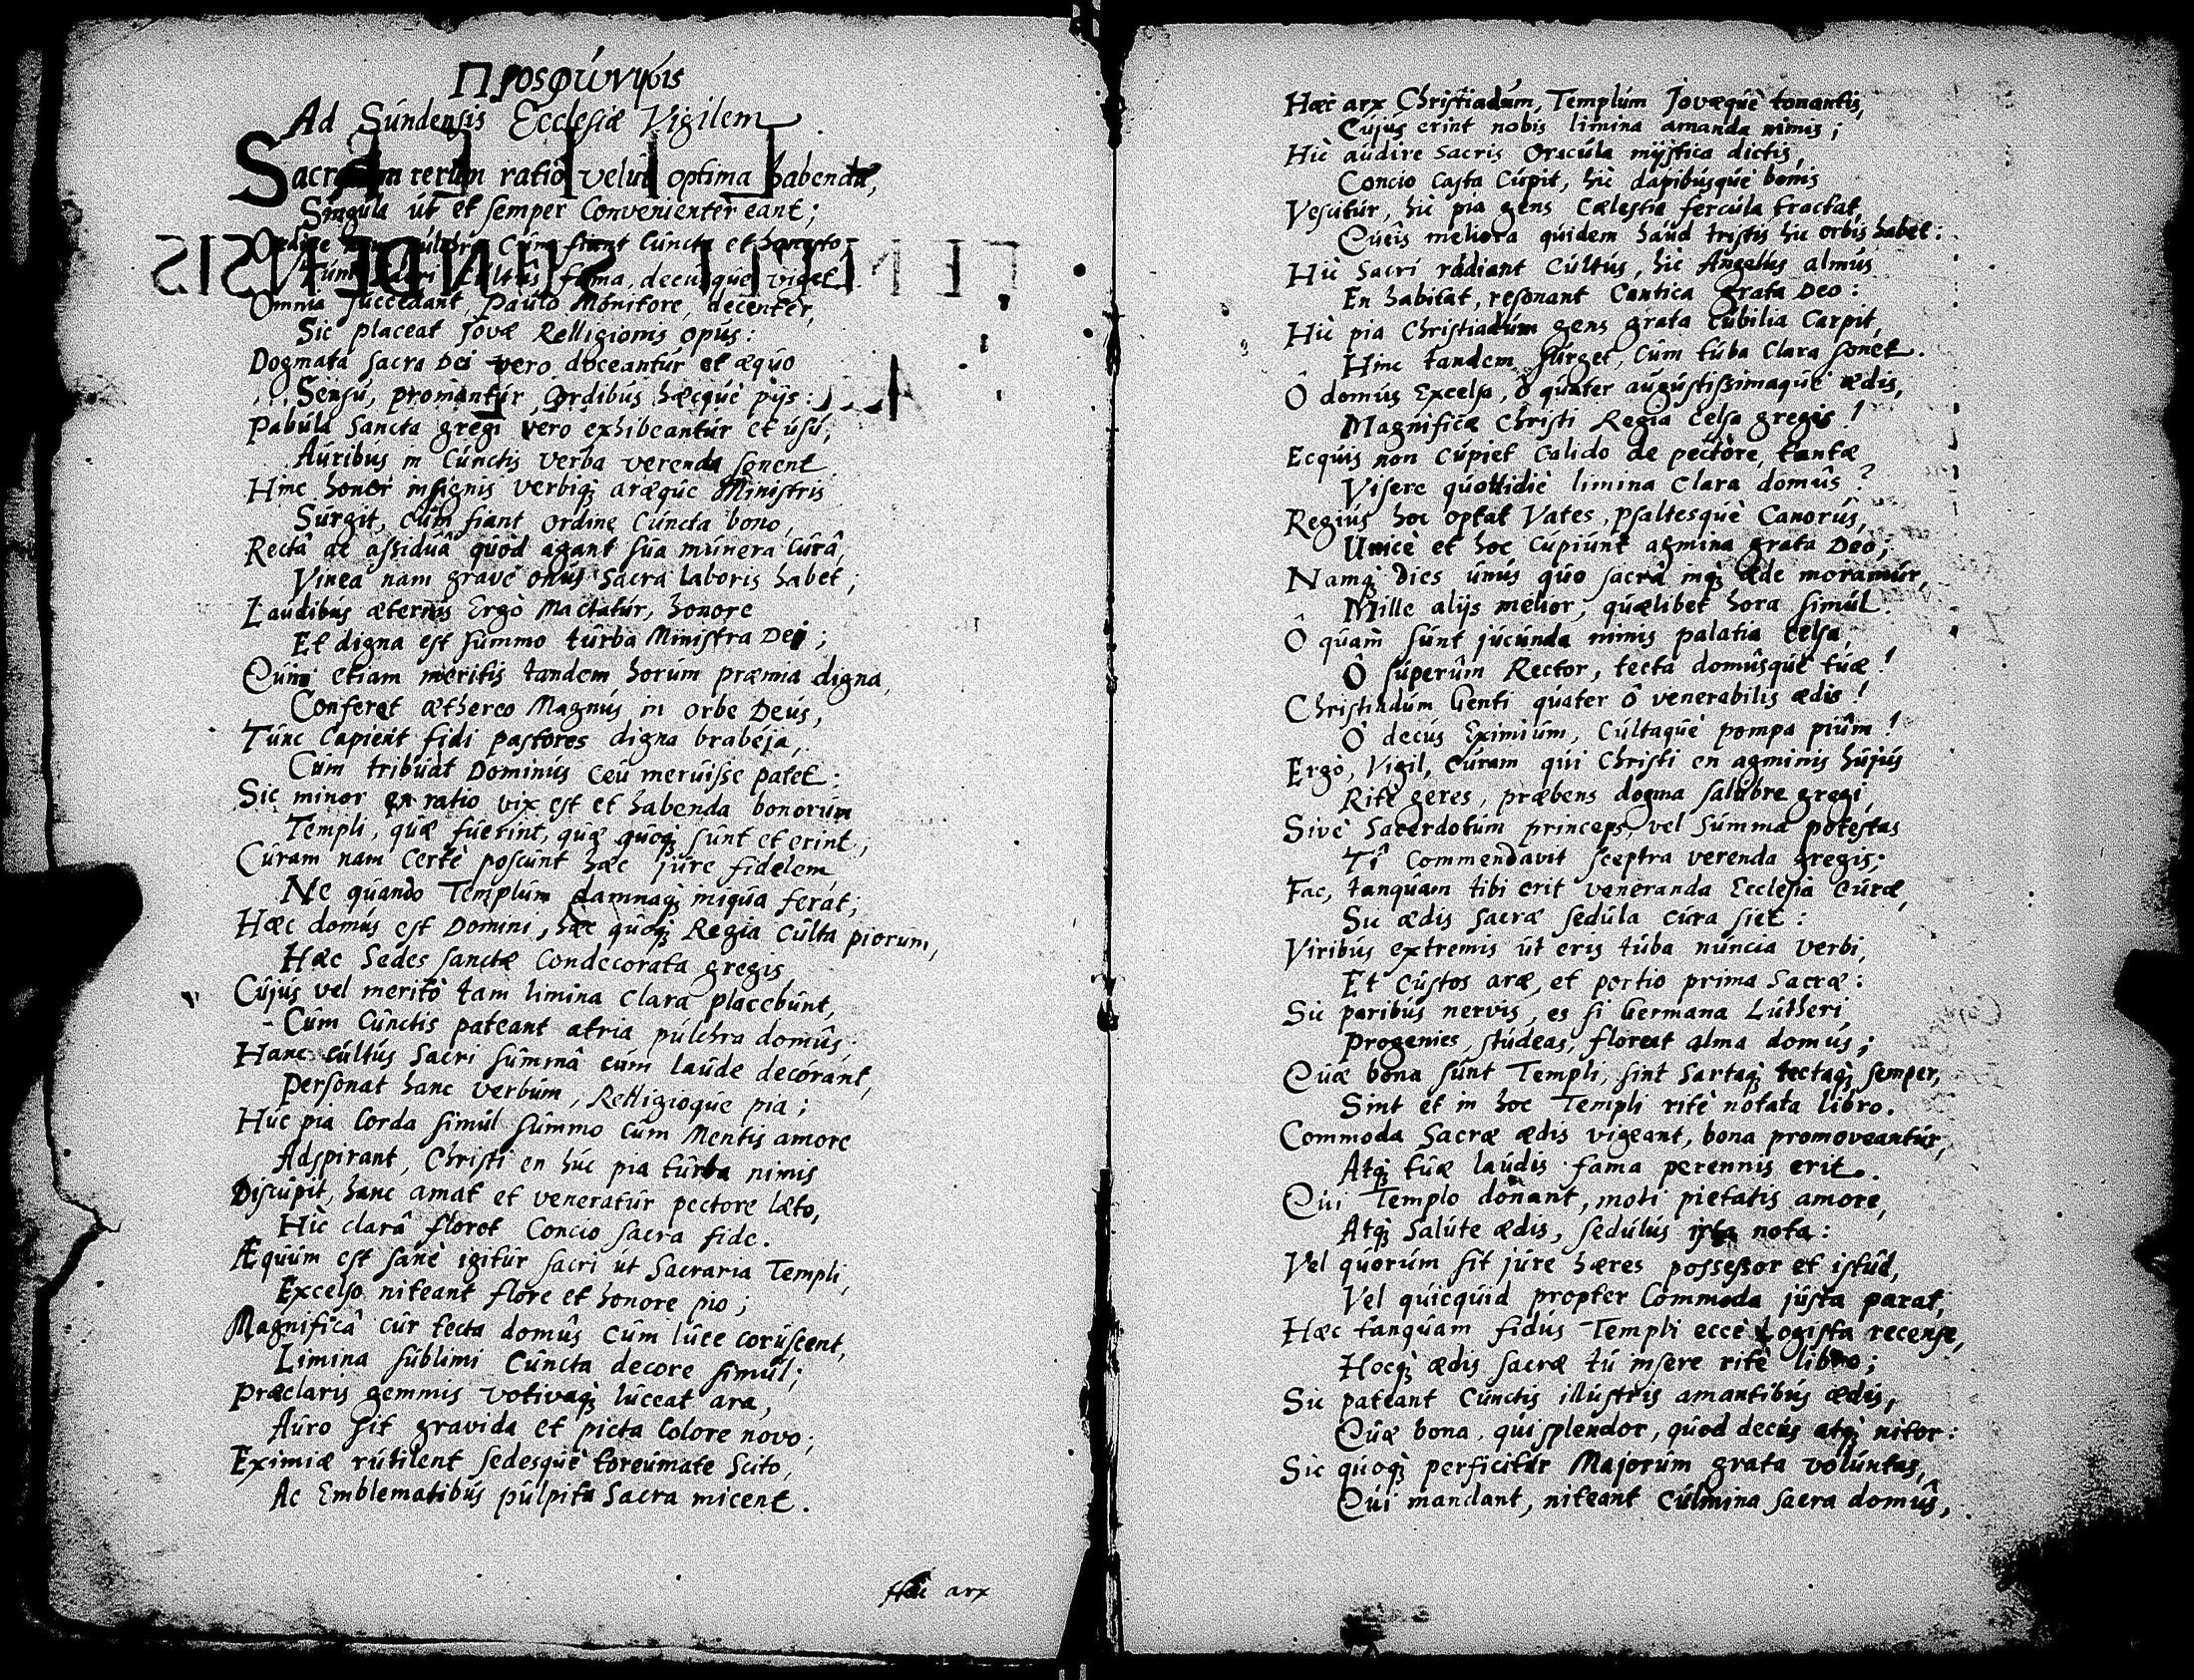 Προσφώνησις
Ad Sundensis Ecclesiæ Vigilem
Sacrarum rerum ratio velut optima habenda,
Singula ut et semper Convenienter eant;
Cum fiant Cuncta et honesto
Tum sacri Cultus fama, decusque viget.
Omnia succedant, Paulo Monitore, decenter,
Sic placeat Jovæ Relligionis opus:
Dogmata sacra Dei vero doceantur et æquo
Sensu, promantur Cordibus hæcque pijs:
Pabula sancta gregi vero exhibeantur et usu,
Auribus in Cunctis verba verenda sonent.
Hinc honor insignis verbiq; aræque Ministris
Surgit, cum fiant ordine Cuncta bono,
Rectâ ac assiduâ quòd agant sua munera curâ,
Vinea nam grave onus sacra laboris habet;
Laudibus æternis Ergò mactatur, honore
Et digna est summo turba Ministra Dei;
Quin etiam meritis tandem horum præmia digna,
Conferet æthereo Magnus in orbe Deus,
Tunc Capient fidi pastores digna brabéja,
Cum tribuat Dominus ceu meruisse patet:
Sic minor en ratio vix est et habenda bonorum
Templi, quæ fuerint, quæ quoq; sunt et erint;
Curam nam Certè poscunt hæc jure fidelem
Ne quando Templum damnaq; iniqua ferat;
Hæc domus est Domini, hæc quoq; Regia Culta piorum,
Hæc Sedes sanctæ Condecorata gregis,
Cujus vel meritò tam limina Clara placebunt,
Cum Cunctis pateant atria pulchra domûs:
Hanc cultus sacri summâ cum laude decorant,
Personat hanc verbum, Relligioque pia;
Huc pia Corda simul summo cum Mentis amore
Adspirant, Christi en huc pia turba nimis
Discupit, hanc amat et veneratur pectore læto,
Hìc clarâ floret Concio sacra fide.
Æquum est sanè igitur sacri ut Sacraria Templi,
Excelso niteant flore et honore pio;
Magnificâ cur tecta domûs cum luce coruscent,
Limina sublimi Cuncta decore simul;
Præclaris gemmis votivaq; luceat ara,
Auro sit gravida et picta Colore novo;
Eximiæ rutilent sedesque toreumate Scito,
Ac Emblematibus pulpita Sacra micent.
Hæc arx
Hæc arx Christiadum, Templum Jovæque tonantis,
Cujus erint nobis limina amanda nimis;
Hìc audire sacris Oracula mystica dictis,
Concio Casta Cupit, hìc dapibusque bonis
Vescitur, hìc pia gens Cælestia fercula tractat,
Queis meliora quidem haud tristis hic orbis habet:
Hìc sacri radiant Cultus, hic Angelus almus
En habitat, resonant Cantica grata Deo:
Hìc pia Christiadum gens grata Cubilia Carpit,
Hinc tandem surget, Cum tuba Clara sonet.
Ô domus Excelsa, ô quater augustissimaque ædis,
Magnificæ Christi Regia Celsa gregis!
Ecquis non Cupiet Calido de pectore, tantæ
Visere quottidiè limina Clara domûs?
Regius hoc optat Vates, psaltesque Canorus,
Unicè et hoc Cupiunt agmina grata Deo;
Namq; Dies unus quo sacrâ inq; æde moramur,
Mille alijs melior, quælibet hora simul.
Ô quam sunt jucunda nimis palatia Celsa,
Ô superûm Rector, tecta domûsque tuæ!
Christiadum Genti quater ô venerabilis ædis!
Ô decus Eximium, Cultaque pompa piûm!
Ergò, Vigil, Curam qui Christi en agminis hujus
Ritè geres, præbens dogma salubre gregi,
Sivè Sacerdotum princeps, vel summa potestas
Tî Commendavit sceptra verenda gregis;
Fac, tanquam tibi erit veneranda Ecclesia Curæ,
Sic ædis sacræ sedula cura siet:
Viribus extremis ut eris tuba nuncia verbi,
Et Custos aræ, et portio prima Sacræ:
Sic paribus nervis, es si Germana Lutheri
Progenies, studeas, floreat alma domus;
Quæ bona sunt Templi, sint sartaq; tectaq; semper,
Sint et in hoc Templi ritè notata libro.
Commoda Sacræ ædis vigeant, bona promoveantur,
Atq; tuæ laudis fama perennis erit.
Qui Templo donant, moti pietatis amore,
Atq; Salute ædis, sedulus ista nota:
Vel quorum sit jure hæres possessor et istud,
Vel quicquid propter Commoda justa parat,
Hæc tanquam fidus Templi eccè Logista recense,
Hocq; ædis sacræ tu insere ritè libro;
Sic pateant Cunctis illustris amantibus ædis,
Quæ bona, qui splendor, quod decus atq; nitor:
Sic quoq; perficitur Majorum grata voluntas,
Qui mandant, niteant culmina sacra domûs,